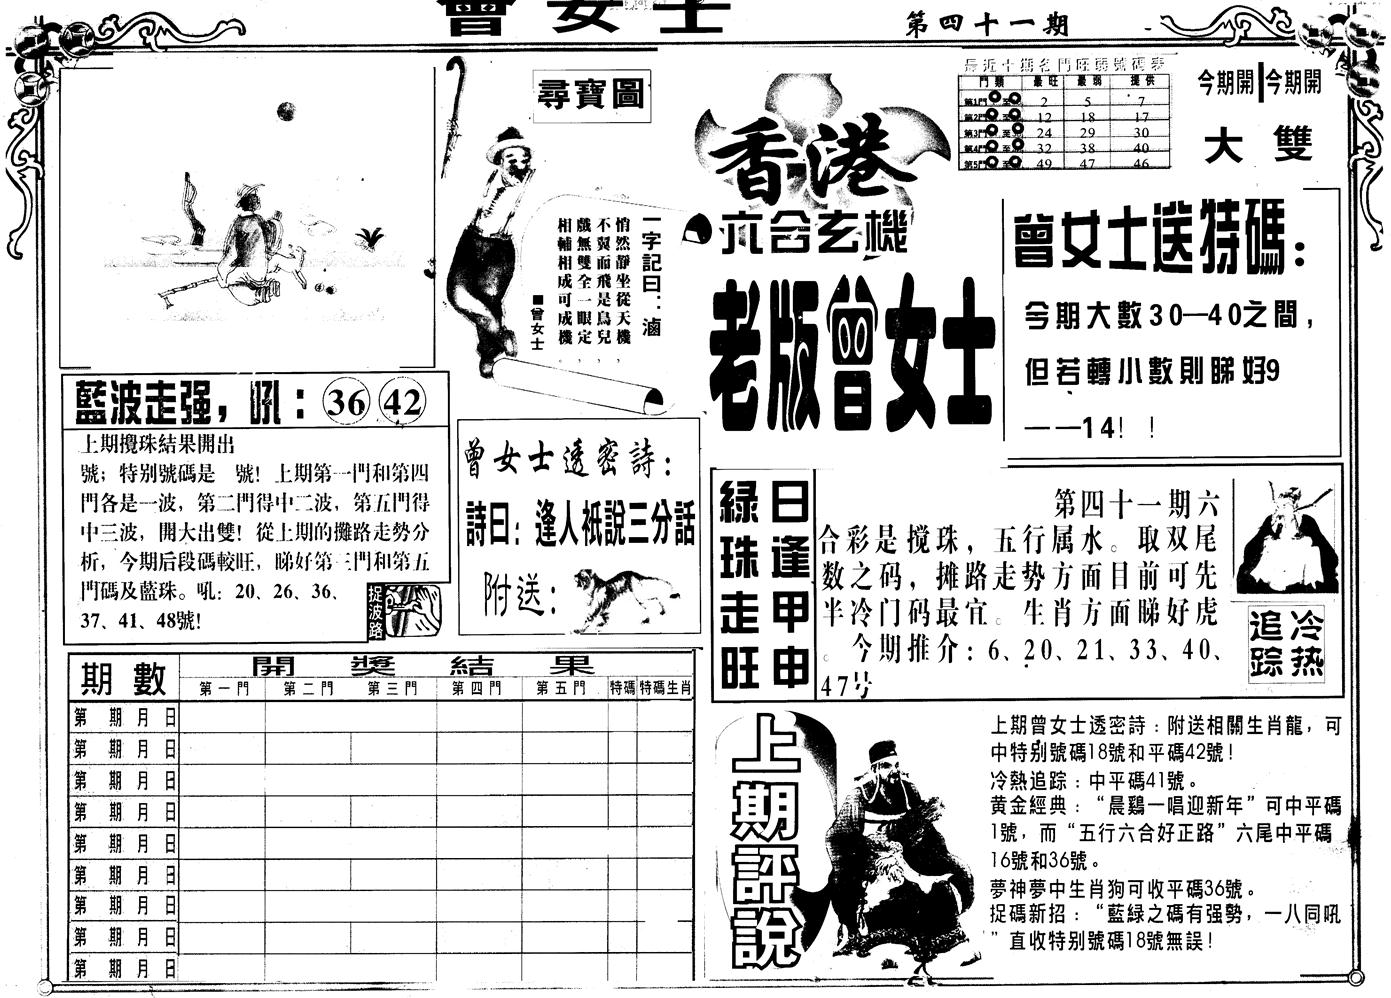 曾女士
第四十一期
尋寶圖
一字記曰：滷
悄然靜坐從天機，
不翼而飛是鳥兒，
戲無雙全一眼定，
相輔相成可成機。
■曾女士
香港
六合玄機
老版曾女士
最近十期各門旺弱號碼表
門類 最旺 最弱 提供
第1門 至 2 5 7
第2門 至 12 18 17
第3門 至 24 29 30
第4門 至 32 38 40
第5門 至 49 47 46
今期開 今期開
大 雙
曾女士送特碼：
今期大數30—40之間，
但若轉小數則睇好9
——14！！
藍波走强，吼：36 42
上期攪珠結果開出
號；特别號碼是 號！上期第一門和第四
門各是一波，第二門得中二波，第五門得
中三波，開大出雙！從上期的攤路走勢分
析，今期后段碼較旺，睇好第三門和第五
門碼及藍珠。吼：20、26、36、
37、41、48號!
捉波路
曾女士透密詩：
詩曰：逢人衹說三分話
附送：
日逢甲申
綠珠走旺
第四十一期六
合彩是搅珠，五行属水。取双尾
数之码，摊路走势方面目前可先
半冷门码最宜。生肖方面睇好虎
。今期推介：6、20、21、33、40、
47号
冷热
追踪
期數 開獎結果
第一門 第二門 第三門 第四門 第五門 特碼 特碼生肖
第 期 月 日
第 期 月 日
第 期 月 日
第 期 月 日
第 期 月 日
第 期 月 日
第 期 月 日
第 期 月 日
第 期 月 日
上期評說
上期曾女士透密詩：附送相關生肖龍，可
中特别號碼18號和平碼42號！
冷熱追踪：中平碼41號。
黄金經典：“晨鷄一唱迎新年”可中平碼
1號，而“五行六合好正路”六尾中平碼
16號和36號。
夢神夢中生肖狗可收平碼36號。
捉碼新招：“藍緑之碼有强勢，一八同吼
”直收特别號碼18號無誤！